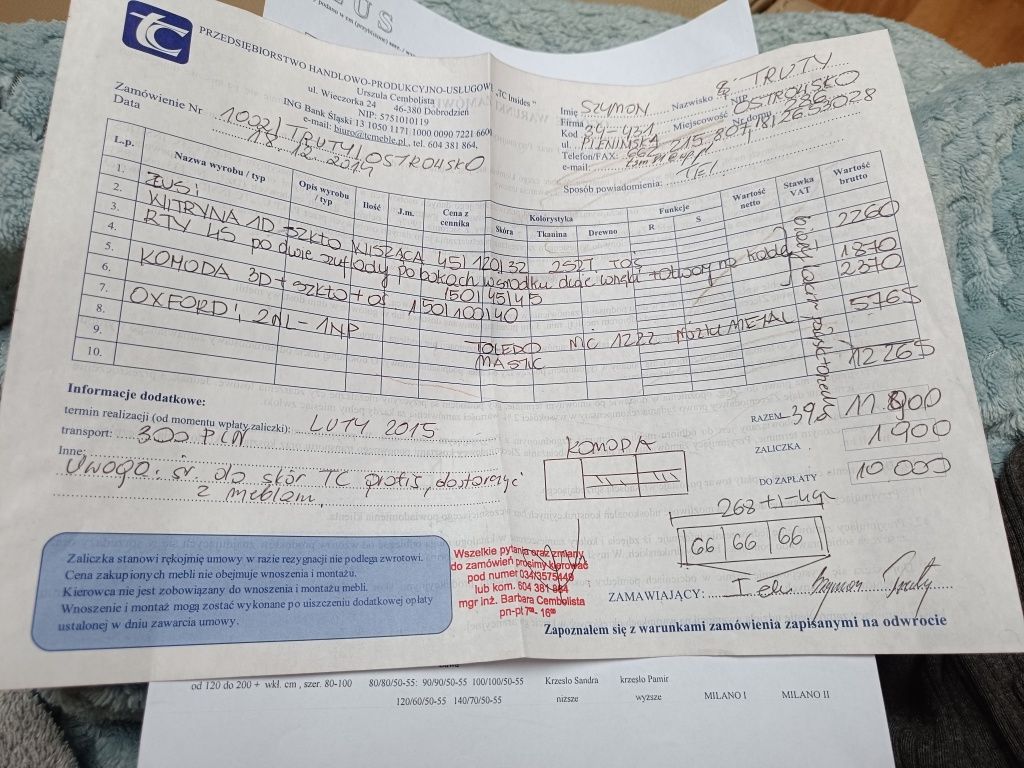 TC
PRZEDSIĘBIORSTWO HANDLOWO-PRODUKCYJNO-USŁUGOWE „TC Insides"
Urszula Cembolista
ul. Wieczorka 24 46-380 Dobrodzień
NIP: 5751010119
ING Bank Śląski 13 1050 1171 1000 0090 7221 6606
e-mail: biuro@tcmeble.pl , tel. 604 381 864,
Imię SZYMON Nazwisko TRUTY
Firma NIP
Kod 34-431 Miejscowość OSTROWSKO
ul. PIENIŃSKA Nr domu 286
Telefon/FAX:
e-mail:
Sposób powiadomienia: Tel
Zamówienie Nr 1002/TRUTY/OSTROWSKO
Data 18.12.2014
L.p. Nazwa wyrobu / typ Opis wyrobu / typ Ilość J.m. Cena z cennika Kolorystyka Skóra Tkanina Drewno Funkcje R S Wartość netto Stawka VAT Wartość brutto
1. ZUSi
2. WITRYNA 1D szkło WISZĄCA 45/120/32 2527 TOŚ 2260
3. RTV 4S po dwie szuflady po bokach w środku dwie wnęki + otwory na kable! 1870
4. 150/45/45 2370
5. KOMODA 3D + szkło + oś 150/100/40
6.
7. OXFORD; 2NL-1NP TOLEDO M/C 1222 NÓZKI METAL 5765
8. MASTIC
9.
10. 12265
Informacje dodatkowe:
termin realizacji (od momentu wpłaty zaliczki): LUTY 2015
transport: 300 PLN
Inne:
Uwaga: śr. do skór TC gratis, dostarczyć
z meblami
RAZEM -3% 11 900
ZALICZKA 1 900
DO ZAPŁATY 10 000
KOMODA
66 66 66
Zaliczka stanowi rękojmię umowy w razie rezygnacji nie podlega zwrotowi.
Cena zakupionych mebli nie obejmuje wnoszenia i montażu.
Kierowca nie jest zobowiązany do wnoszenia i montażu mebli.
Wnoszenie i montaż mogą zostać wykonane po uiszczeniu dodatkowej opłaty
ustalonej w dniu zawarcia umowy.
Wszelkie pytania oraz zmiany
do zamówień prosimy kierować
pod numer 034/3575448
lub kom. 604 381 864
mgr inż. Barbara Cembolista
pn-pt 7⁰⁰- 16⁰⁰
ZAMAWIAJĄCY: Szymon Truty
Zapoznałem się z warunkami zamówienia zapisanymi na odwrocie
od 120 do 200 + wkł. cm , szer. 80-100 80/80/50-55: 90/90/50-55 100/100/50-55 Krzesło Sandra krzesło Pamir
120/60/50-55 140/70/50-55 niższe wyższe MILANO I MILANO II